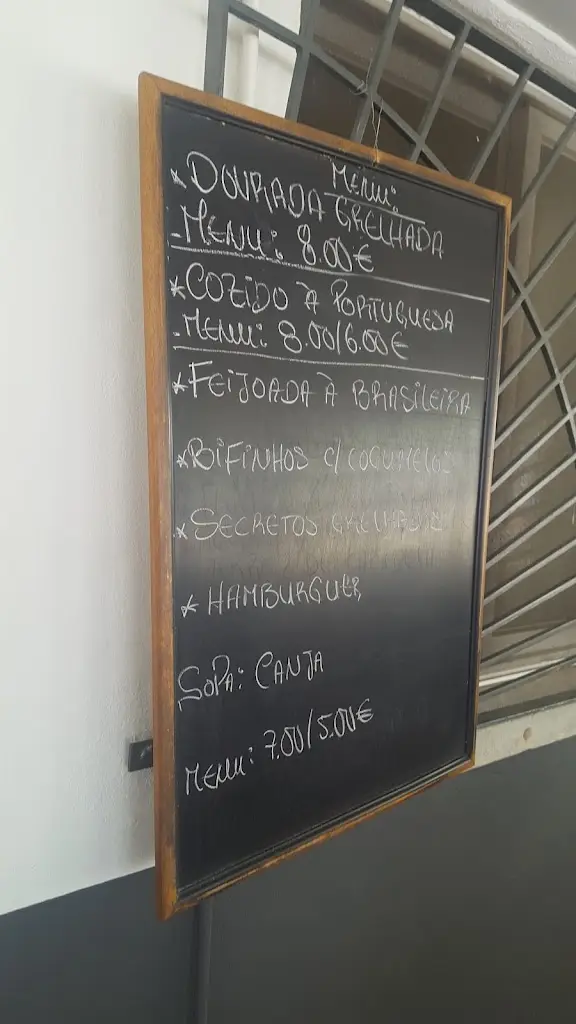 Menu:
* DOURADA GRELHADA
- MENU: 8.00€
* COZIDO À PORTUGUESA
- MENU: 8.00/6.00€
* FEIJOADA À BRASILEIRA
* BIFINHOS C/ COGUMELOS
* SECRETOS GRELHADOS
* HAMBURGUER
SOPA: CANJA
MENU: 7.00/5.00€